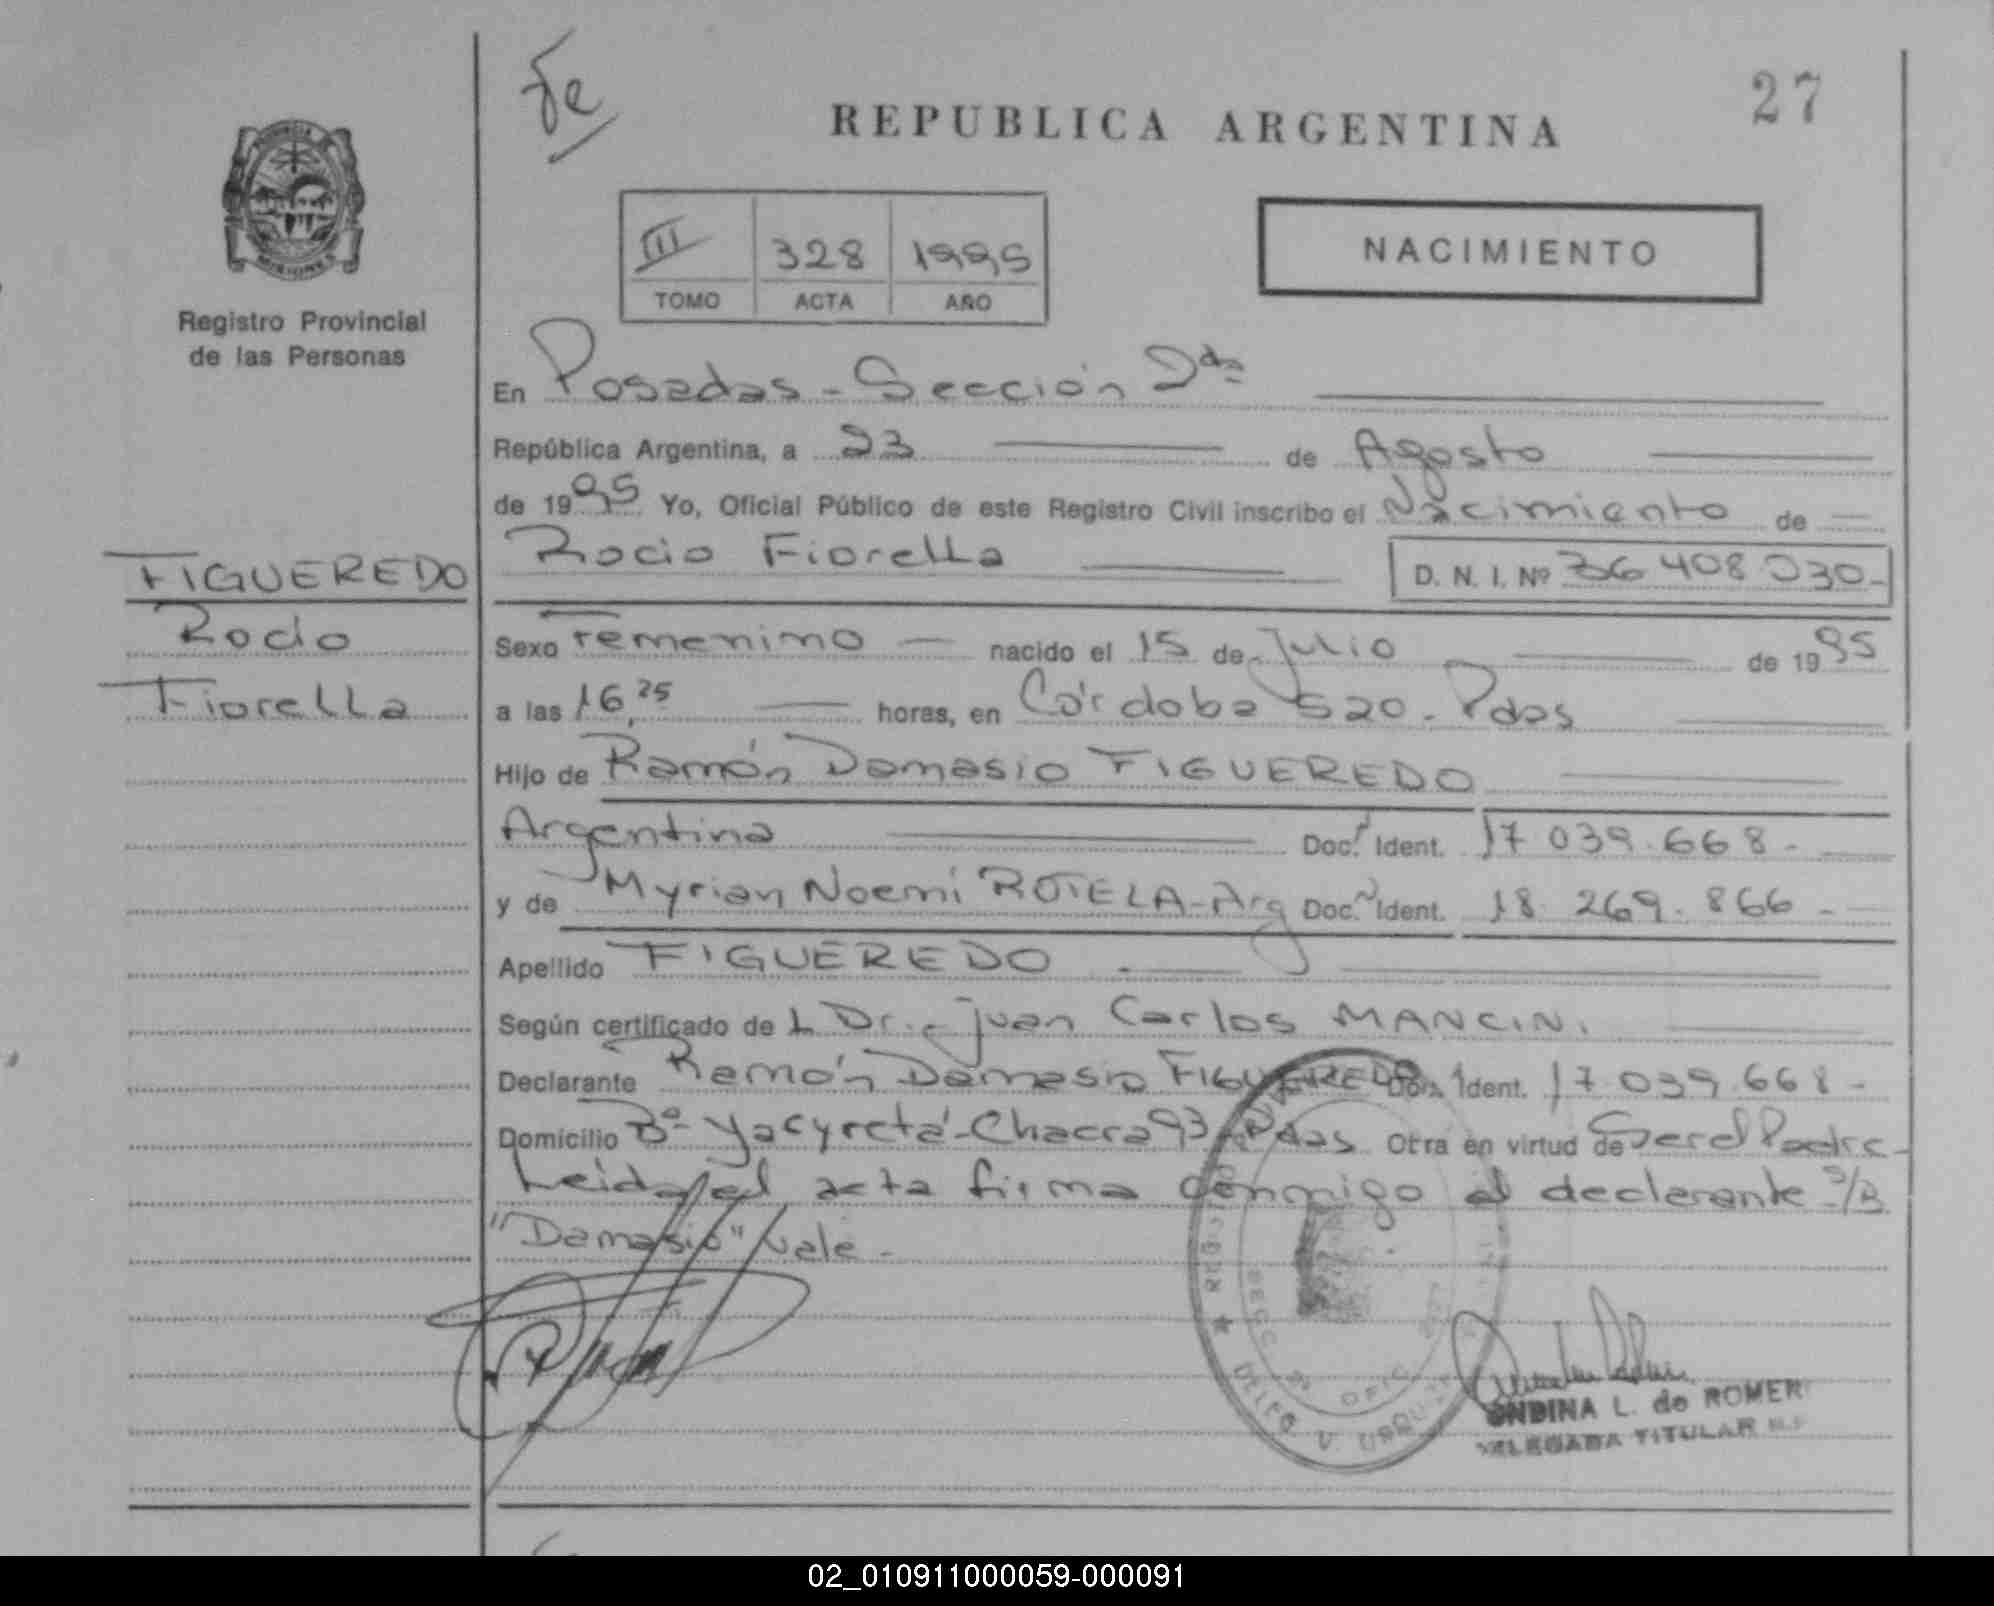 fe
27
REPUBLICA ARGENTINA
PROVINCIA
MISIONES
III 328 1995
TOMO ACTA AÑO
NACIMIENTO
Registro Provincial
de las Personas
En Posadas - Sección 2da
República Argentina, a 23 de Agosto
de 1995 Yo, Oficial Público de este Registro Civil inscribo el Nacimiento de
Rocio Fiorella D. N. I. Nº 36 408 030-
FIGUEREDO
Rocio
Fiorella
Sexo Femenino nacido el 15 de Julio de 1995
a las 16,25 horas, en Córdoba 520 - Pdas
Hijo de Ramón Damasio FIGUEREDO
Argentina Doc. Ident. 17 039.668 -
y de Myrian Noemí ROTELA - Arg Doc. Ident. 18 269.866 -
Apellido FIGUEREDO
Según certificado de L Dr. Juan Carlos MANCINI
Declarante Ramón Damasio FIGUEREDO Doc. Ident. 17.039.668 -
Domicilio Bº Yacyretá - Chacra 93 - Pdas Otra en virtud de Ser el Padre -
Leida el acta firma conmigo el declarante - S/B
"Damasio" vale -
REGISTRO
SECC 2ª OFIC
DELEG V. URQUIZA
ONDINA L. de ROMER
DELEGADA TITULAR
02_010911000059-000091